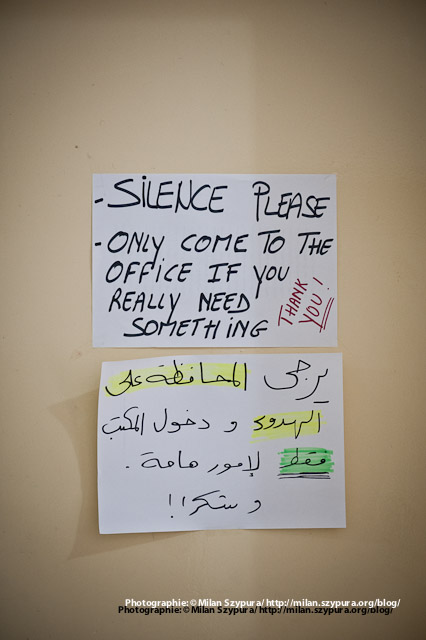 - SILENCE PLEASE
- ONLY COME TO THE
OFFICE IF YOU
REALLY NEED
SOMETHING
THANK
YOU!
يرجى المحافظة على
الهدوء و دخول المكتب
فقط لإمور هامة .
و شكرا!!
Photographie: © Milan Szypura/ http://milan.szypura.org/blog/
Photographie: © Milan Szypura/ http://milan.szypura.org/blog/